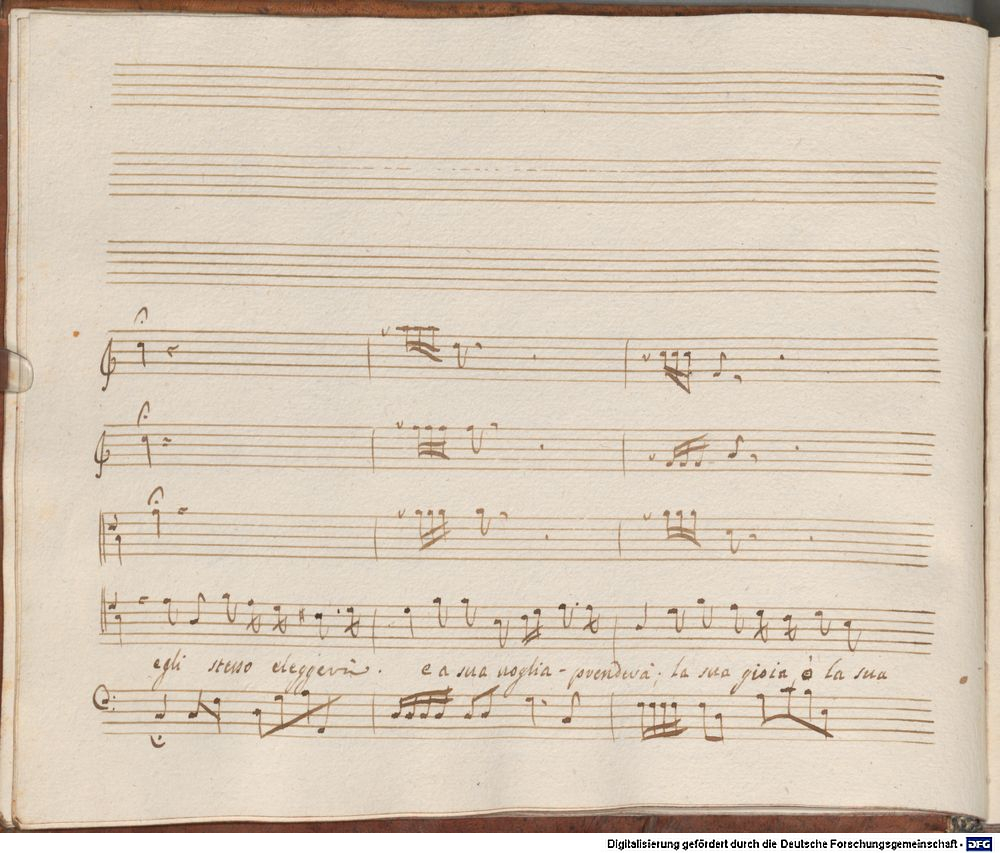 egli stesso eleggerà. e a sua voglia - prenderà; la sua gioia, ò la sua
Digitalisierung gefördert durch die Deutsche Forschungsgemeinschaft - DFG